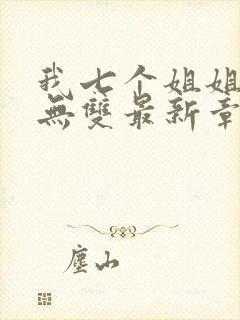 我七个姐姐
無雙最新章
塵山